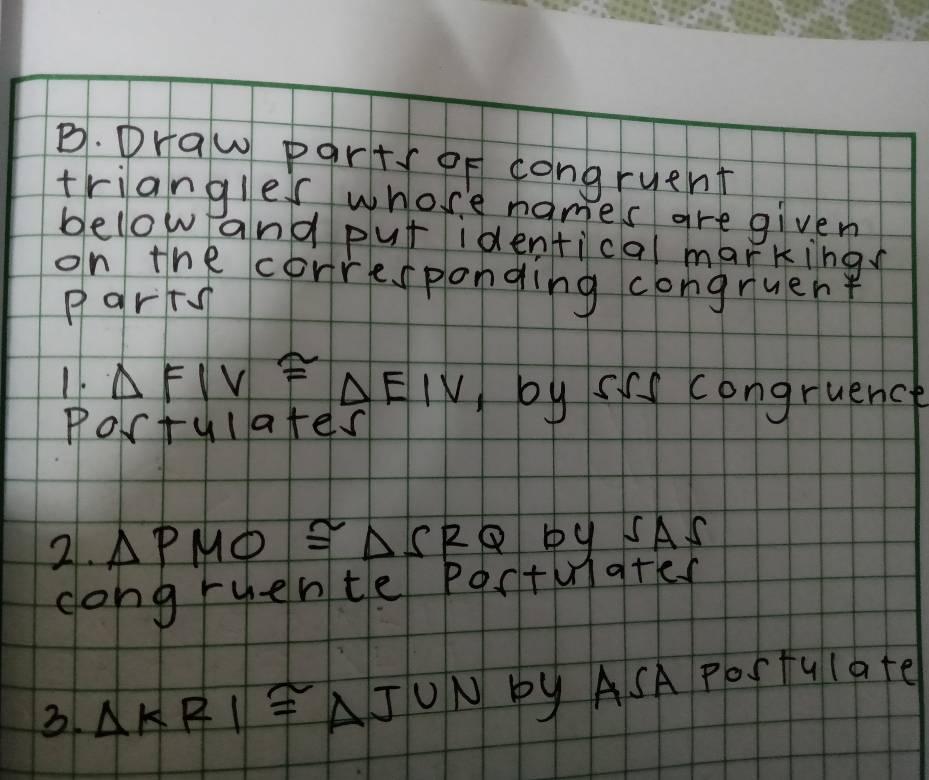 B. Draw parts of congruent
triangles whose names are given
below and put identical markings
on the corresponding congruent
parts
1. △FIV ≅ △EIV, by SSS congruence
Postulates
2. △PMO ≅ △SRQ by SAS
congruente Postulates
3. △KRI ≅ △JUN by ASA postulate